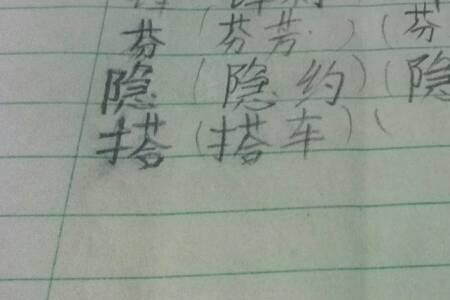 芬(芬芳)(芬
隐(隐约)(隐
搭(搭车)(